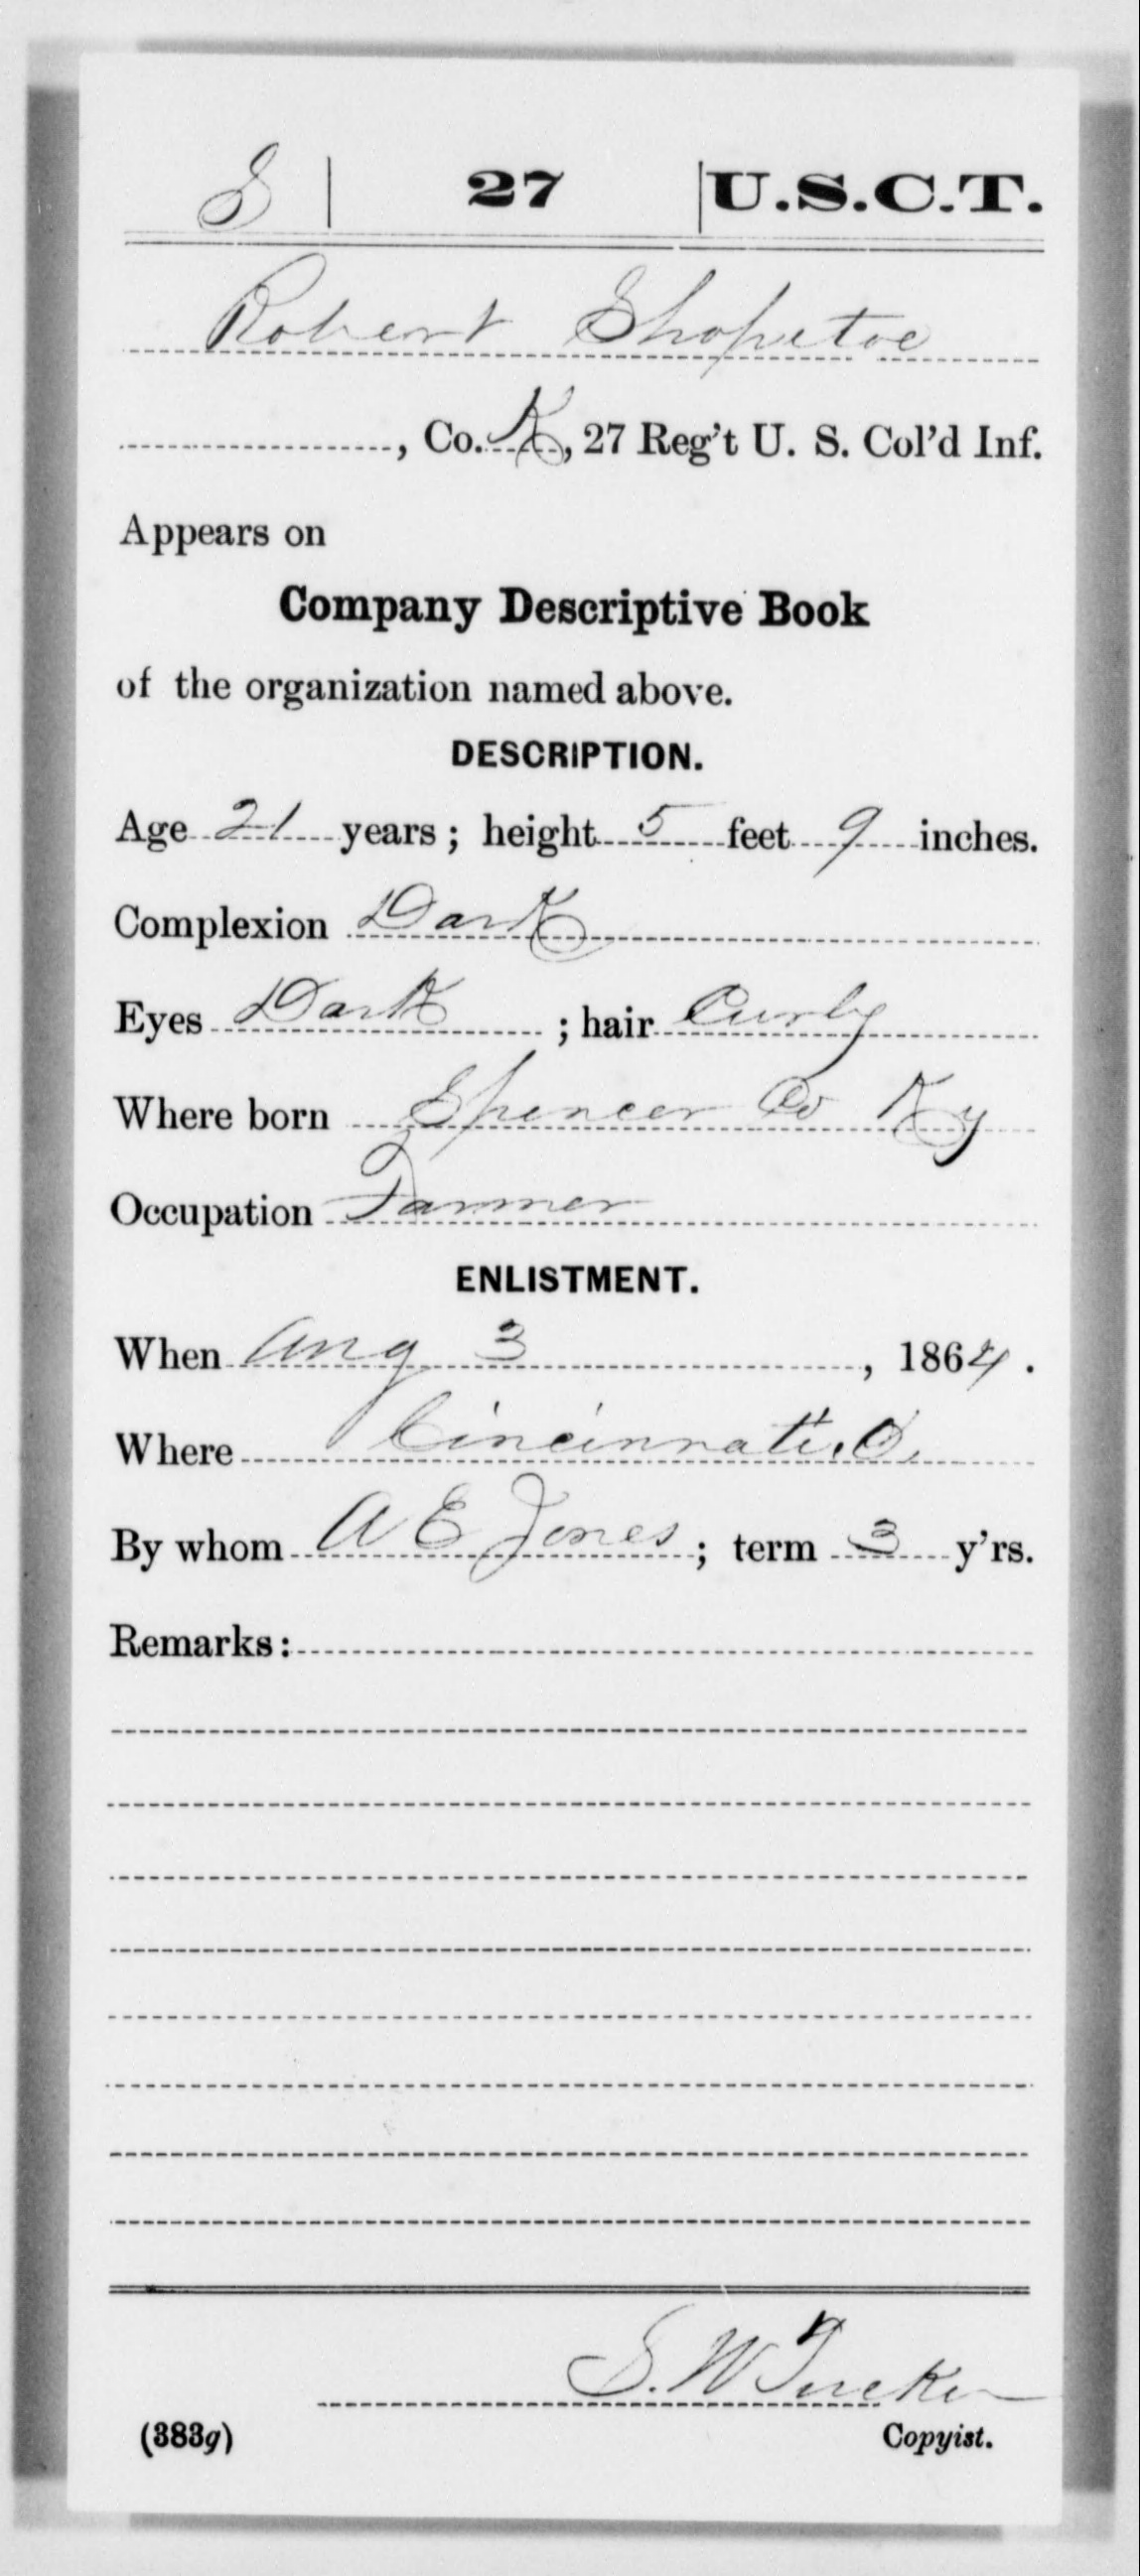 S | 27 | U.S.C.T.
Robert Shopetoe
, Co. K, 27 Reg't U. S. Col'd Inf.
Appears on
Company Descriptive Book
of the organization named above.
DESCRIPTION.
Age 21 years; height 5 feet 9 inches.
Complexion Dark
Eyes Dark ; hair Curly
Where born Spencer Co Ky
Occupation Farmer
ENLISTMENT.
When Aug 3, 1864.
Where Cincinnati, O.
By whom A E Jones; term 3 y'rs.
Remarks:
S. W. Tucker
(383g) Copyist.